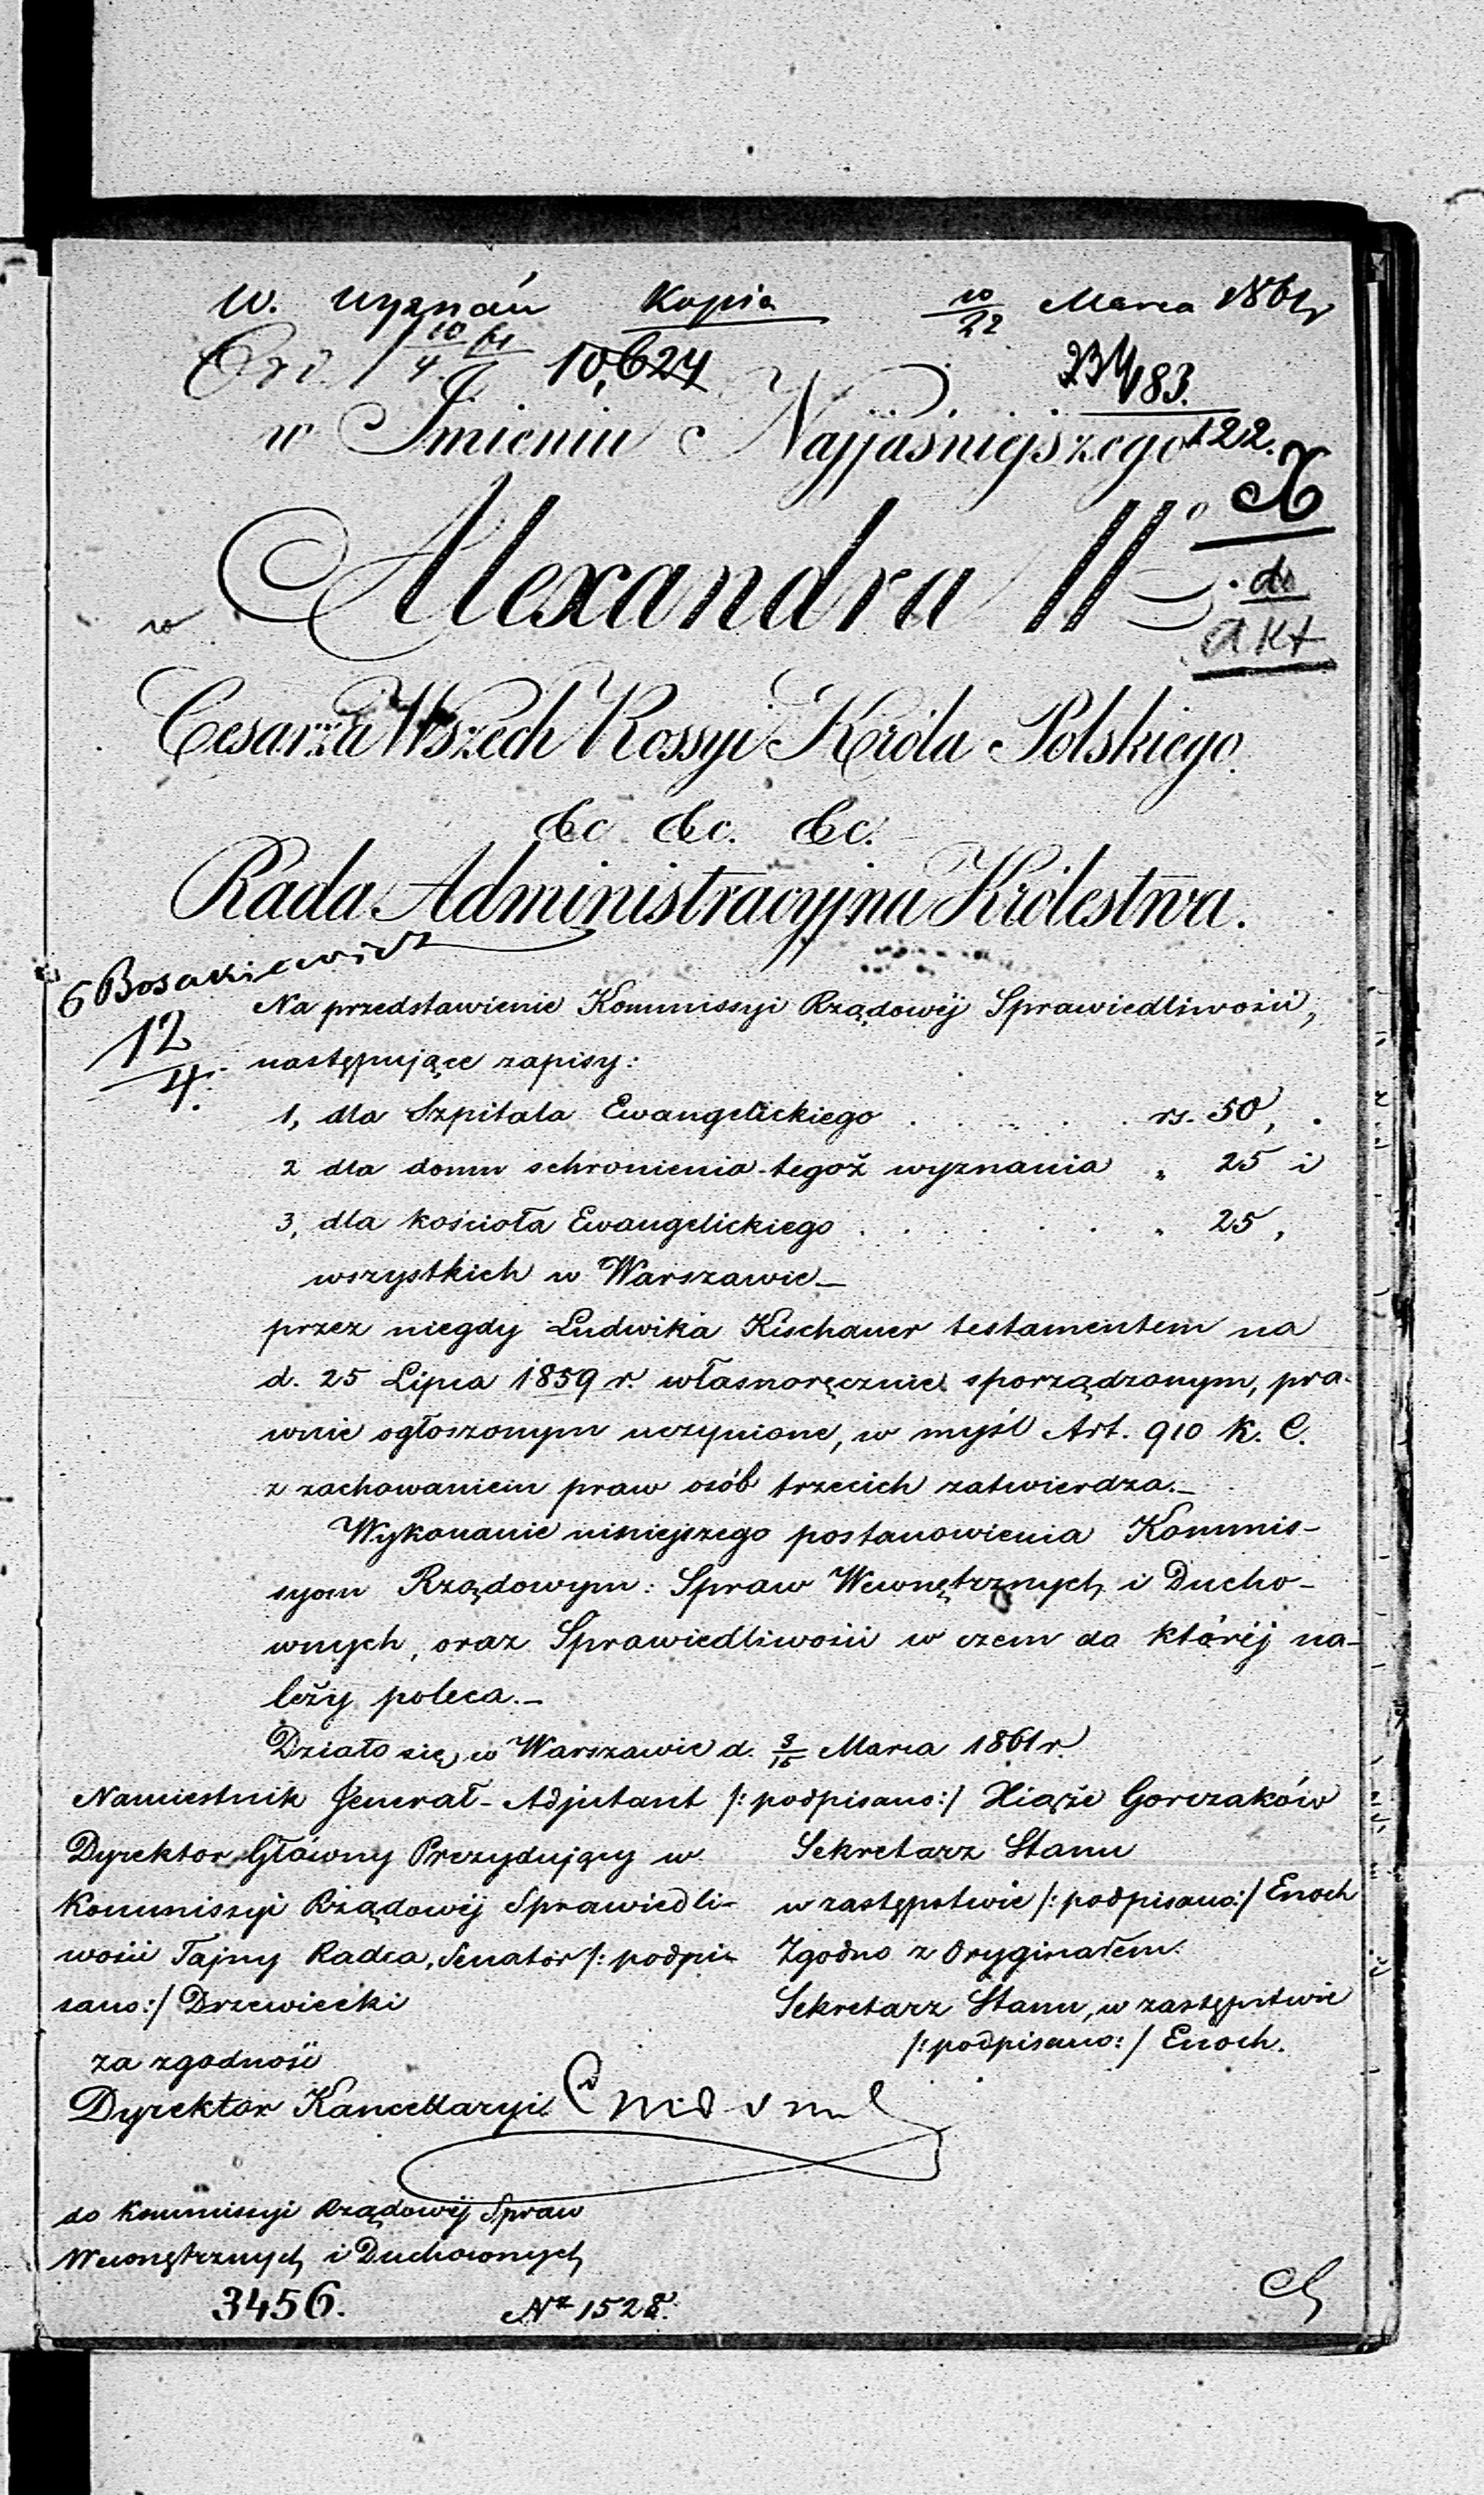 W. Wyznań Kopia 10/22 Marca 1861 r
10/4 61 10,624 183.
w Imieniu Najjaśniejszego 122.
Alexandra IIo
do
akt
w
Cesarza Wszech Rossyi Króla Polskiego
&c &c. &c.
Rada Administracyjna Królestwa.
6 Bosakiewicz
12/4.
Na przedstawienie Kommissyi Rządowéj Sprawiedliwości,
następujące zapisy:
1, dla Szpitala Ewangelickiego . . . . . rs. 50, .
2 dla domu schronienia tegoż wyznania „ 25 i
3, dla kościoła Ewangelickiego . . . . . „ 25,
wszystkich w Warszawie_
przez niegdy Ludwika Kischauer testamentem na
d. 25 Lipca 1859 r. własnoręcznie sporządzonym, pra-
wnie ogłoszonym uczynione, w myśl Art. 910 K. C.
z zachowaniem praw osób trzecich zatwierdza._
Wykonanie niniejszego postanowienia Kommis-
syom Rządowym: Spraw Wewnętrznych i Ducho-
wnych, oraz Sprawiedliwości w czem do któréj na-
leży poleca._
Działo się w Warszawie d. 3/15 Marca 1861 r.
Namiestnik Jenerał-Adjutant /:podpisano:/ Xiąże Gorczaków
Dyrektor Główny Prezydujący w
Kommissyi Rządowéj Sprawiedli-
wości Tajny Radca, Senator /: podpi-
sano:/ Drzewiecki
Sekretarz Stanu
w zastępstwie /:podpisano:/ Enoch
Zgodno z Oryginałem.
Sekretarz Stanu, w zastępstwie
/:podpisano:/ Enoch.
za zgodność
Dyrektor Kancellaryi
do Kommissyi Rządowéj Spraw
Wewnętrznych i Duchownych
3456. Nr 1528.